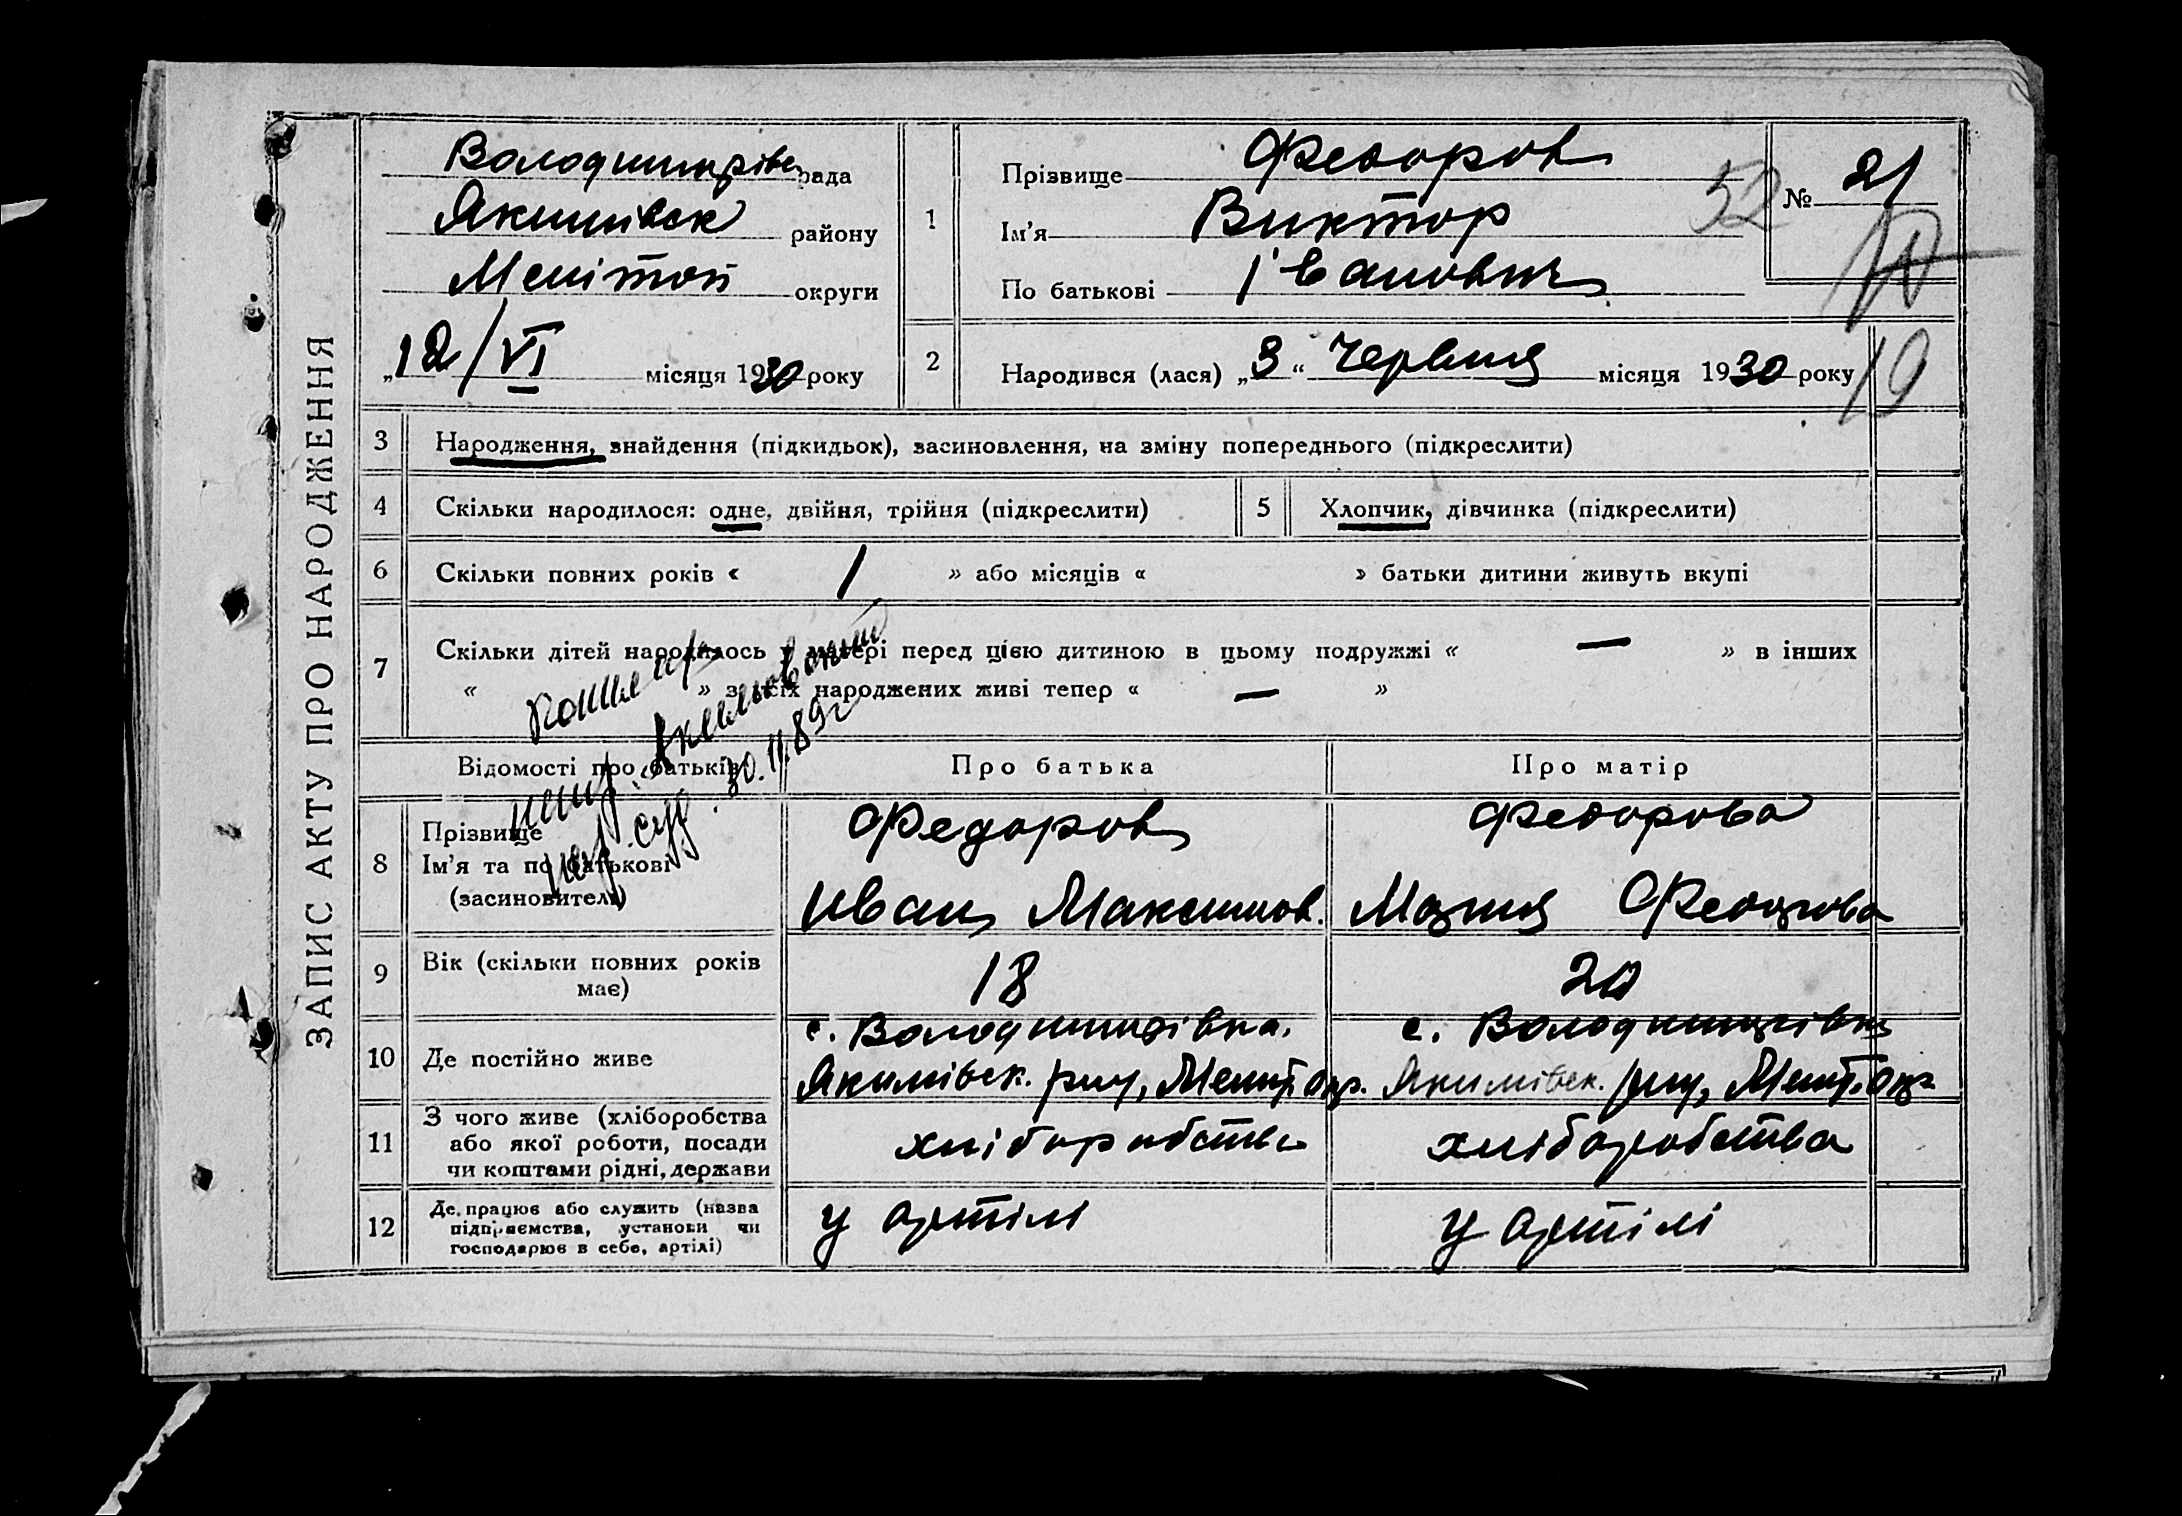 ЗАПИС АКТУ ПРО НАРОДЖЕННЯ
Володимирівс рада
Якимівськ району
Меліton округи
„12/VI місяця 1930 року
1
Прізвище Федоров
Ім’я Виктор
По батькові Іванович
52
№ 21
19
2
Народився (лася) „3“ Червня місяця 1930 року
3 Народження, знайдення (підкидьок), засиновлення, на зміну попереднього (підкреслити)
4 Скільки народилося: одне, двійня, трійня (підкреслити)
5 Хлопчик, дівчинка (підкреслити)
6 Скільки повних років « 1 » або місяців « » батьки дитини живуть вкупі
7 Скільки дітей народилось у матері перед цією дитиною в цьому подружжі « — » в інших
« » з усіх народжених живі тепер « — »
30.11.89г
Відомості про батьків Про батька Про матір
8 Прізвище
Ім’я та по батькові
(засиновителя)
Федоров
Иван Максимов.
Федорова
Мария Федорова
9 Вік (скільки повних років
має)
18
20
10 Де постійно живе
с. Володимирівка.
Якимівск. рну, Меліт. окр.
с. Володимирівка
Якимівск. рну, Меліт. окр
11 З чого живе (хліборобства
або якої роботи, посади
чи коштами рідні, держави
хліборобства
хліборобства
12 Де працює або служить (назва
підприємства, установи чи
господарює в себе, артілі)
у артілі
у артілі